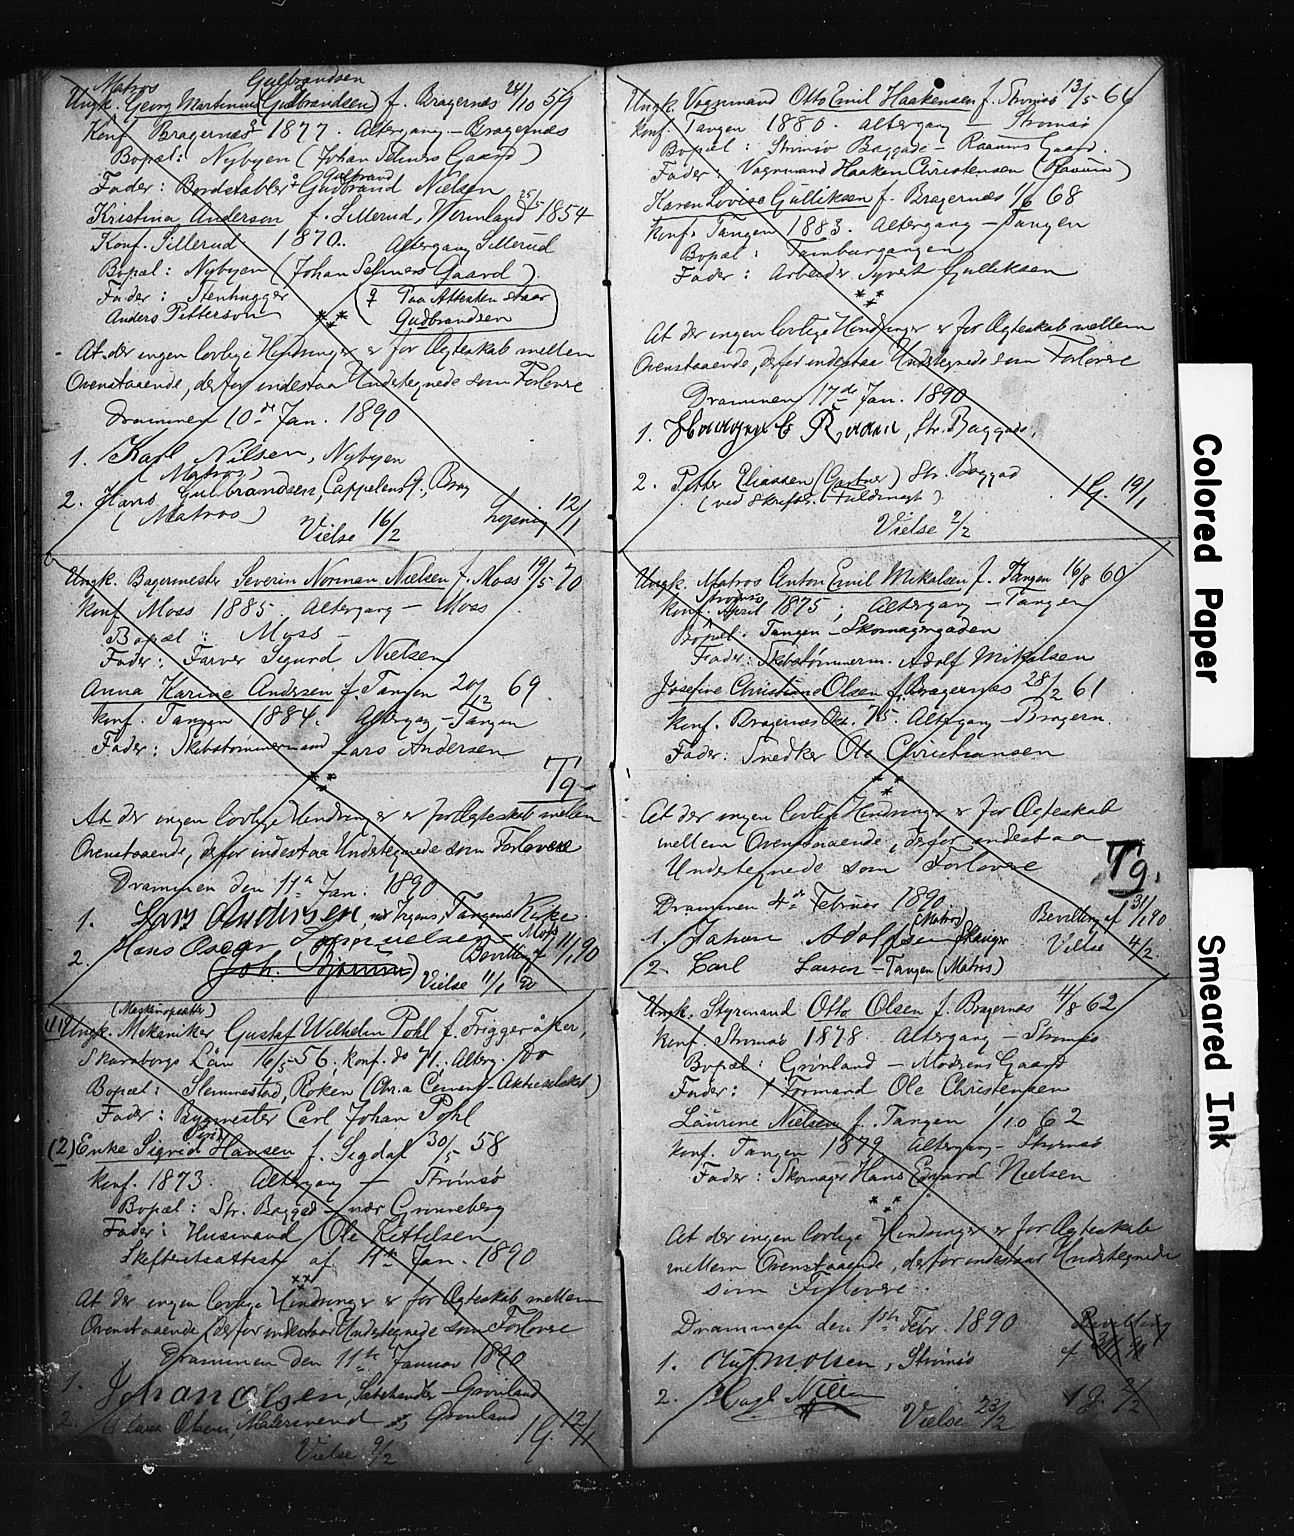 Matros Gulbrandsen
Ungk. Georg Martinius (Gudbrandsen) f. Bragernæs 24/10 59
Konf. Bragernæs 1877. Altergang - Bragernæs
Bopæl: Nybyen (Johan Selmers Gaard)
Gulbrand
Fader: Bordstabler Gudbrand Nielsen
Kristina Anderson f. Sillerud, Wermland 25/5 1854
Konf. Sillerud 1870. Altergang Sillerud
Bopæl: Nybyen (Johan Selmers Gaard)
Fader: Stenhugger
Anders Petterson
Paa Attesten staar
Gudbrandsen
At der ingen lovlige Hindringer er for Ægteskab mellem
Ovenstaaende, derfor indestaa Undertegnede som Forlovere
Drammen 10de Jan. 1890
1. Karl Nilsen, Nybyen
(Matros)
2. Hans Gulbrandsen, Cappelens G., Brag
(Matros)
Vielse 16/2 Lysning 12/1
Ungk. Bagermester Severin Norman Nielsen f. Moss 19/5 70
Konf Moss 1885. Altergang - Moss
Bopæl: Moss
Fader: Farver Sigurd Nielsen
Anna Karine Andersen f. Tangen 20/12 69.
Konf. Tangen 1884. Altergag - Tangen
Fader: Skibstømmermand Lars Andersen
Tg
At der ingen lovlige Hindringer er for Ægteskab mellem
Ovenstaaende, derfor indestaa Undertegnede som Forlovere
Drammen den 11te Jan. 1890
1. Lars Andersen Tangens Kirke
2. Hans Oscar Samuelsen - Moss
(Joh. Bjørnn) Bevilling af 11/1 90
Vielse 11/1 90
(Maskinopsætter)
Ungk. Mekaniker Gustaf Wilhelm Pohl f. Friggeråker,
Skaraborgs Län 16/5 56, Konf. do 71., Alterg. Do
Bopæl: Slemmestad, Røken (Chr.a Cement-Aktieselskab)
Fader: Bygmester Carl Johan Pohl
(2) Enke Sigrid Hansen f. Sigdal 30/5 58
Konf. 1873. Altergang - Strømsø
Bopæl: Str. Baggad - nær Grønneberg
Fader: Husmand Ole Kittelsen
Skifteretsattest af 11te Jan. 1890
At der ingen lovlige Hindringer er for Ægteskab mellem
Ovenstaaende, derfor indestaar Undertegnede som Forlovere
Drammen den 11te Januar 1890
1. Johan Olsen, Grønland
2. Claus Olsen, Malersvend Grønland
1 G. 12/1
Vielse 9/2
Ungk. Vognmand Otto Emil Haakensen f. Strømsø 13/5 66
Konf. Tangen 1880. Altergang - Strømsø
Bopæl: Strømsø Baggade - Raauns Gaard.
Fader: Vognmand Haaken Christensen (Raaun)
Karen Lovise Gulliksen f. Bragernæs 1/6 68
Konf. Tangen 1883. Altergang - Tangen
Bopæl: Tamburgangen
Fader: Arbeider Syvert Gulliksen
At der ingen lovlige Hindringer er for Ægteskab mellem
Ovenstaaende, derfor indestaa Undertegnede som Forlovere
Drammen 17de Jan. 1890
1. Haagen C Raaun, Str. Baggade.
2. Petter Eliassen (Gartner) Str. Baggad
(ved skriftl. Fuldmagt)
1 G. 19/1
Vielse 2/2
Ungk. Matros Anton Emil Mikalsen f. Tangen 16/8 60
Strømsø
Konf. April 1875; Altergang - Tangen
Bopæl: Tangen - Skomagergaden
Fader: Skibstømmerm. Adolf Mikalsen
Josefine Christiane Olsen f. Bragernæs 28/2 61
Konf. Bragernæs Okt. 75. Altergang - Bragern.
Fader: Snedker Ole Christiansen
At der ingen lovlige Hindringer er for Ægteskab
mellem Ovenstaaende, derfor indestaa
Undertegnede som Forlovere
Tg.
Drammen 4de Februar 1890
1. Johan Adolfsen (Matros) Bevilling af 31/1 90
Vielse 4/2
2. Carl Larsen - Tangen (Matros)
Ungk. Styrmand Otto Olsen f. Bragernæs 4/8 62
Konf. Strømsø 1878. Altergang - Strømsø
Bopæl: Grønland - Madsens Gaard
Fader: † Formand Ole Christensen
Laurine Nielsen f. Tangen 1/10 62
Konf. Tangen 1879 Altergang - Strømsø
Fader: Skomager Hans Edvard Nielsen
At der ingen lovlige Hindringer er for Ægteskab
mellem Ovenstaaende, derfor indestaar Undertegnede
som Forlovere.
Drammen den 1ste Febr. 1890
Bevilling
1. M. Olsen, Strømsø
2.
1 G. 2/2
Vielse 23/2
Colored Paper
Smeared Ink